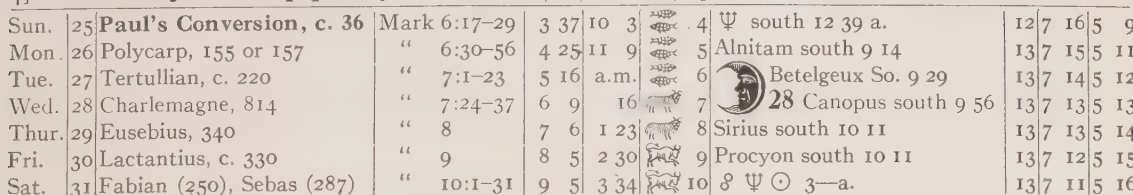 Sun. 25 Paul's Conversion, c. 36 Mark 6:17–29 3 37 10 3 . 4 ♆ south 12 39 a. 12 7 16 5 9
Mon. 26 Polycarp, 155 or 157 " 6:30–56 4 25 11 9 5 Alnitam south 9 14 13 7 15 5 11
Tue. 27 Tertullian, c. 220 " 7:1–23 5 16 a.m. 6 Betelgeux So. 9 29 13 7 14 5 12
Wed. 28 Charlemagne, 814 " 7:24–37 6 9 16 7 28 Canopus south 9 56 13 7 13 5 13
Thur. 29 Eusebius, 340 " 8 7 6 1 23 8 Sirius south 10 11 13 7 13 5 14
Fri. 30 Lactantius, c. 330 " 9 8 5 2 30 9 Procyon south 10 11 13 7 12 5 15
Sat. 31 Fabian (250), Sebas (287) " 10:1–31 9 5 3 34 10 ☍ ♆ ☉ 3—a. 13 7 11 5 16